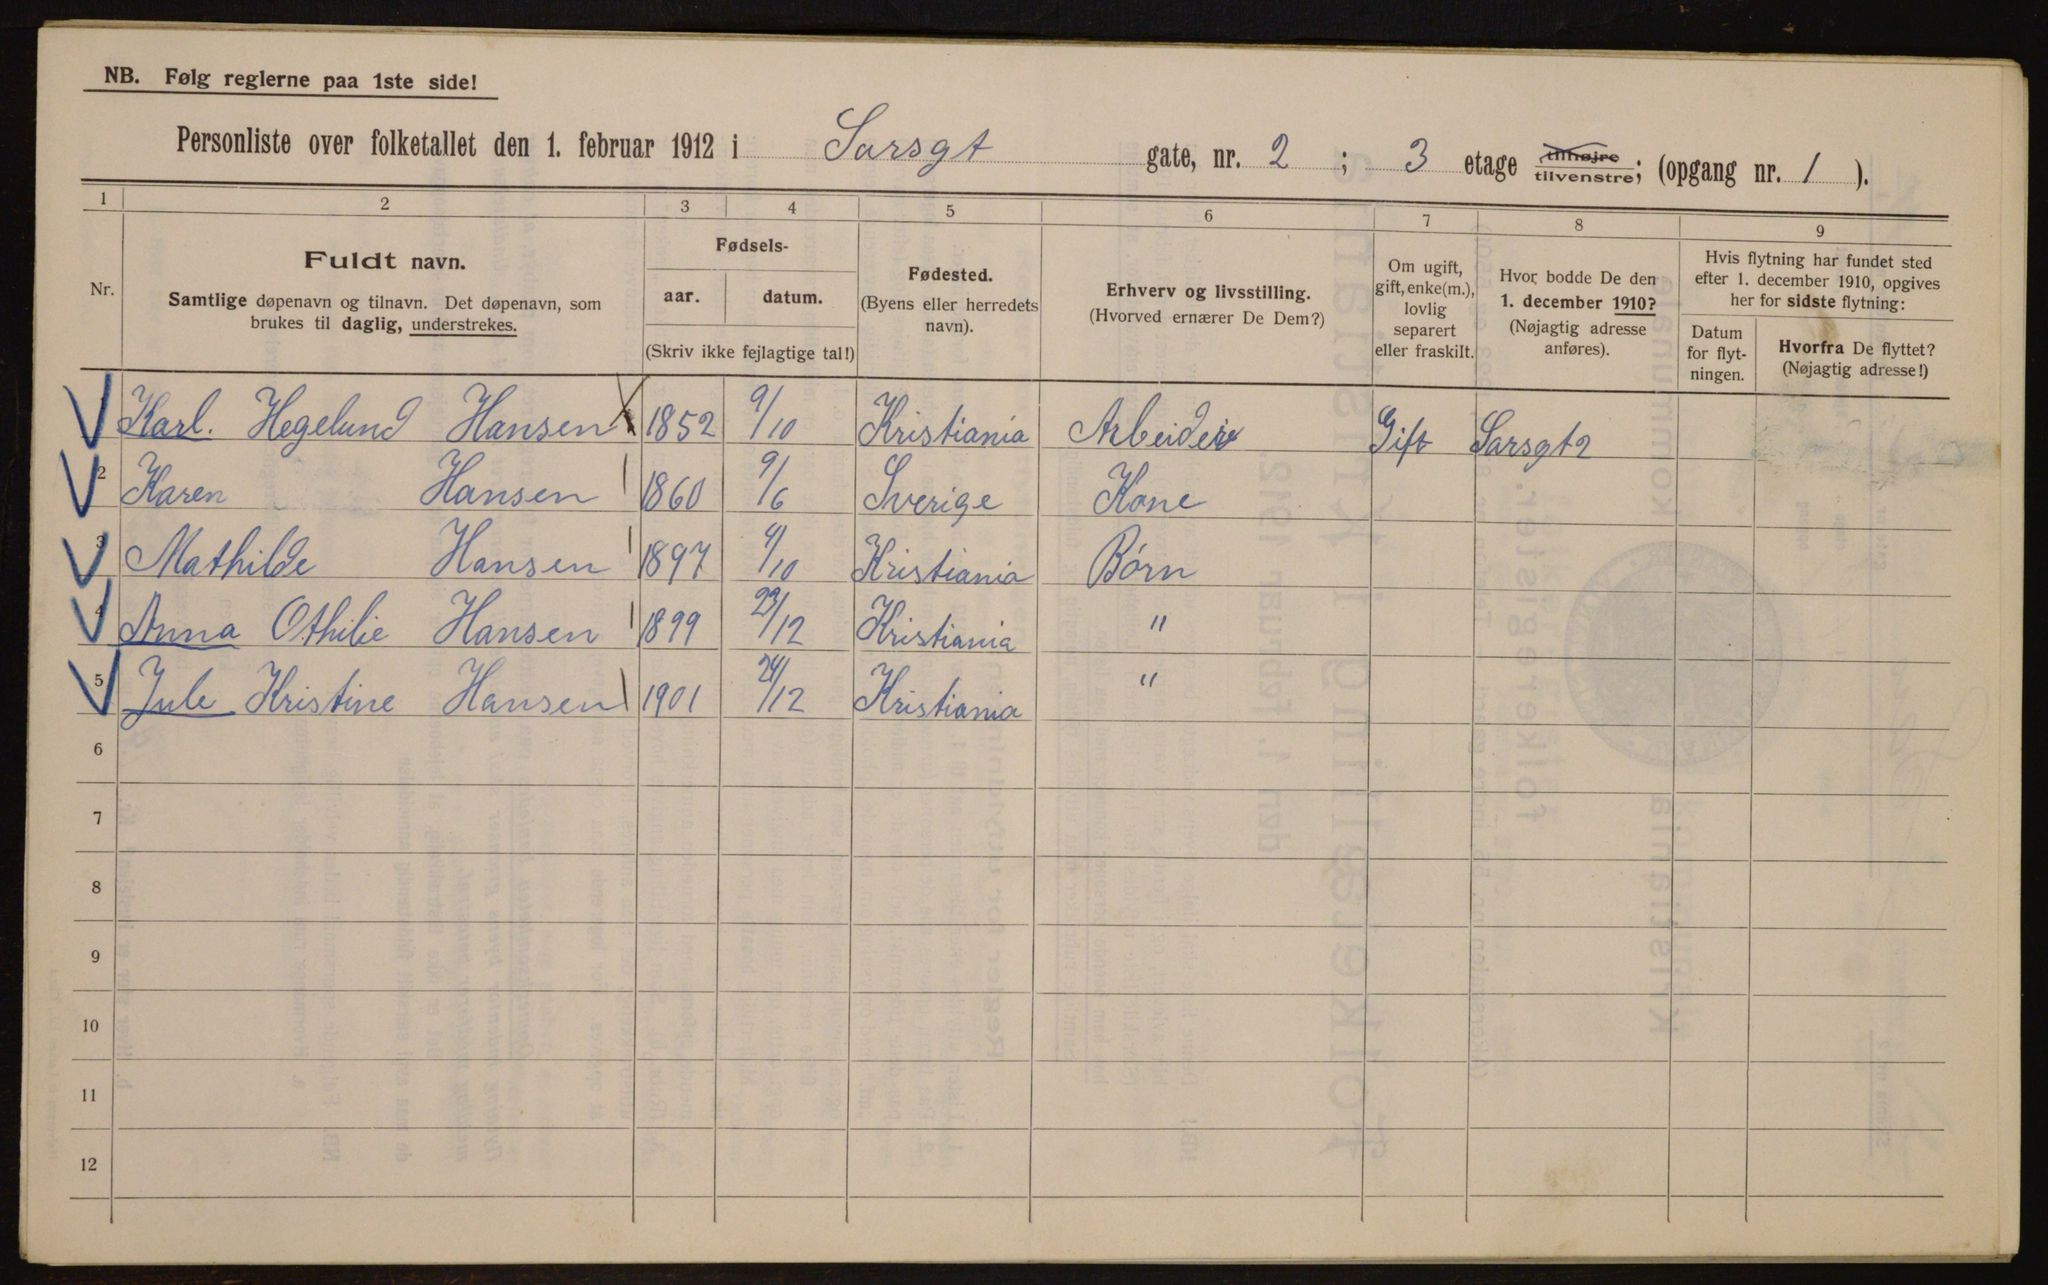 NB. Følg reglerne paa 1ste side!
Personliste over folketallet den 1. februar 1912 i Sarsgt gate, nr. 2 ; 3 etage tilhøjre tilvenstre; (opgang nr. 1 ).
1 2 3 4 5 6 7 8 9
Nr.
Fuldt navn.
Samtlige døpenavn og tilnavn. Det døpenavn, som
brukes til daglig, understrekes.
Fødsels-
aar. datum.
(Skriv ikke fejlagtige tal!)
Fødested.
(Byens eller herredets
navn).
Erhverv og livsstilling.
(Hvorved ernærer De Dem?)
Om ugift,
gift, enke(m.),
lovlig
separert
eller fraskilt.
Hvor bodde De den
1. december 1910?
(Nøjagtig adresse
anføres).
Hvis flytning har fundet sted
efter 1. december 1910, opgives
her for sidste flytning:
Datum
for flyt-
ningen.
Hvorfra De flyttet?
(Nøjagtig adresse!)
Karl. Hegelund Hansen 1852 9/10 Kristiania Arbeider Gift Sarsgt 2
2 Karen Hansen 1860 9/6 Sverige Kone
3 Mathilde Hansen 1897 4/10 Kristiania Børn
4 Anna Othilie Hansen 1899 23/12 Kristiania "
5 Jule Kristine Hansen 1901 24/12 Kristiania "
6
7
8
9
10
11
12